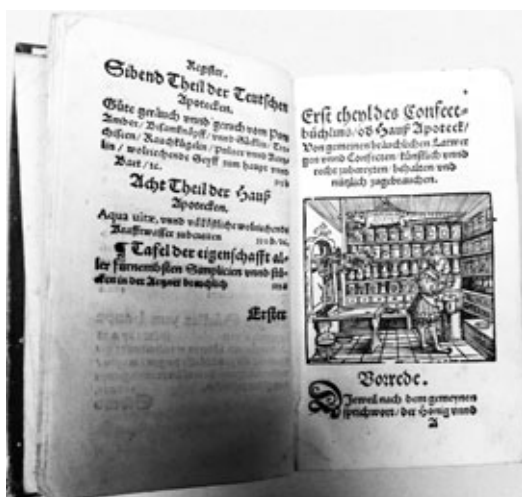 Register.
Sibend Theil der Teutschen
Apotecken.
Güte geräuch vnnd geruch vom
Amber/ Bisamknöpff/ vnd
Rauchkügelin/ Puluer vnnd
lin/ wolriechende Seyff zum haupt vnnd
Bart/ ꝛc.
Acht Theil der Hauß
Apotecken.
Aqua uitæ, vnnd wolriechende
Krafftwasser
¶ Tafel der eigenschafft al-
ler fürnembsten Simplicien vnnd
cken in der Artzney breuchlich
Erster
Erst theyl des Confect-
büchlins/ Hauß Apoteck/
Von gemeinen Latwer
gen vnnd Confecten/ künstlich vnnd
recht zubereyten/ behalten vnd
nützlich zugebrauchen.
Vorrede.
DJeweil nach dem gemeynen
sprichwort/ der Honig vnnd
A